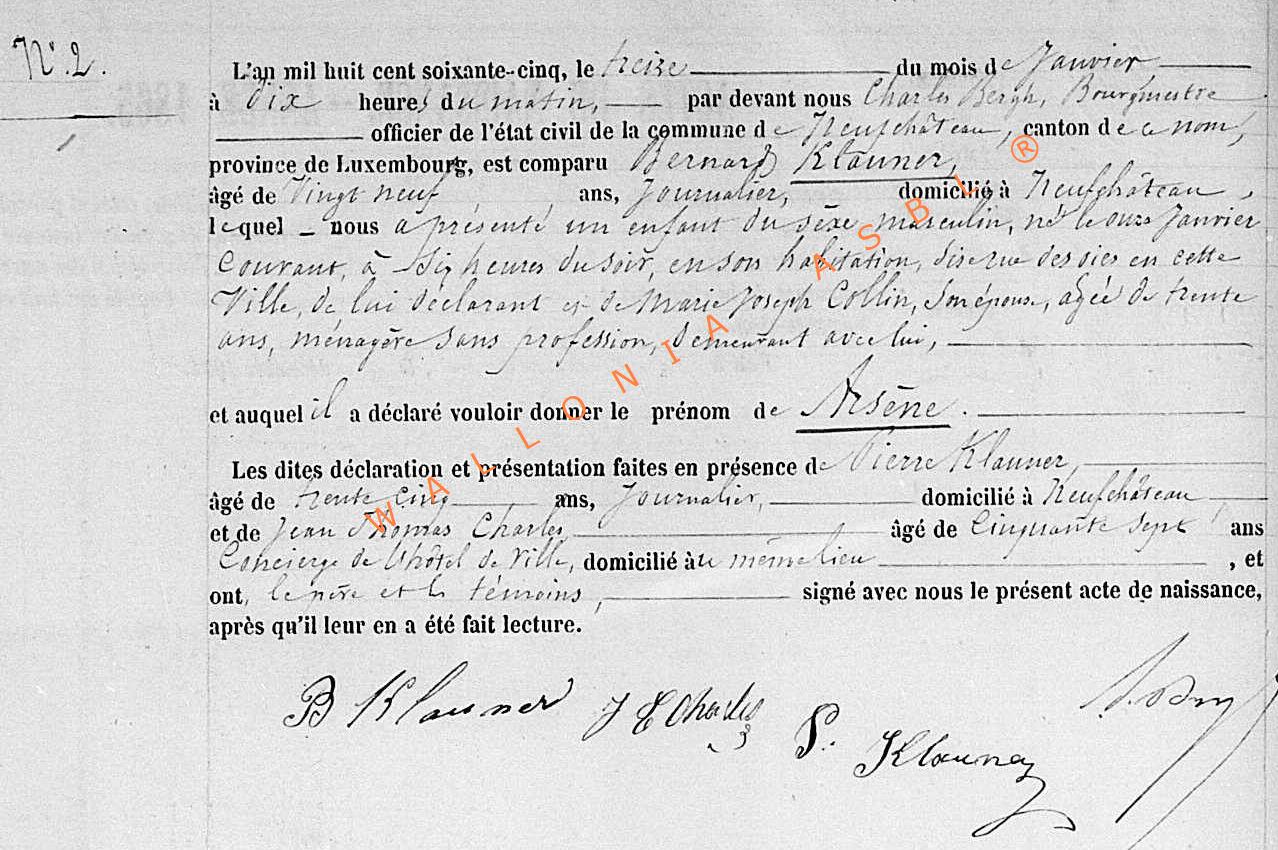 N°. 2.
L'an mil huit cent soixante-cinq, le treize du mois de Janvier
à Dix heures du matin, par devant nous Charles Bergh, Bourgmestre
officier de l'état civil de la commune de Neufchâteau, canton de ce nom,
province de Luxembourg, est comparu Bernard Klauner,
âgé de Vingt neuf ans, Journalier, domicilié à Neufchâteau,
lequel nous a présenté un enfant du sèxe masculin, né le onze Janvier
Courant, à Six heures du soir, en son habitation, dise rue des oies en cette
Ville, de lui déclarant et de Marie Joseph Collin, Son épouse, agée de trente
ans, ménagère sans profession, demeurant avec lui,
et auquel il a déclaré vouloir donner le prénom de Arsène.
Les dites déclaration et présentation faites en présence de Pierre Klauner,
âgé de trente cinq ans, Journalier, domicilié à Neufchâteau
et de Jean Thomas Charles, âgé de Cinquante sept ans
Concierge de l'hôtel de Ville, domicilié à même lieu, et
ont, le père et les témoins, signé avec nous le présent acte de naissance,
après qu'il leur en a été fait lecture.
B Klauner J T Charles
P. Klauner
WALLONIA ASBL ®